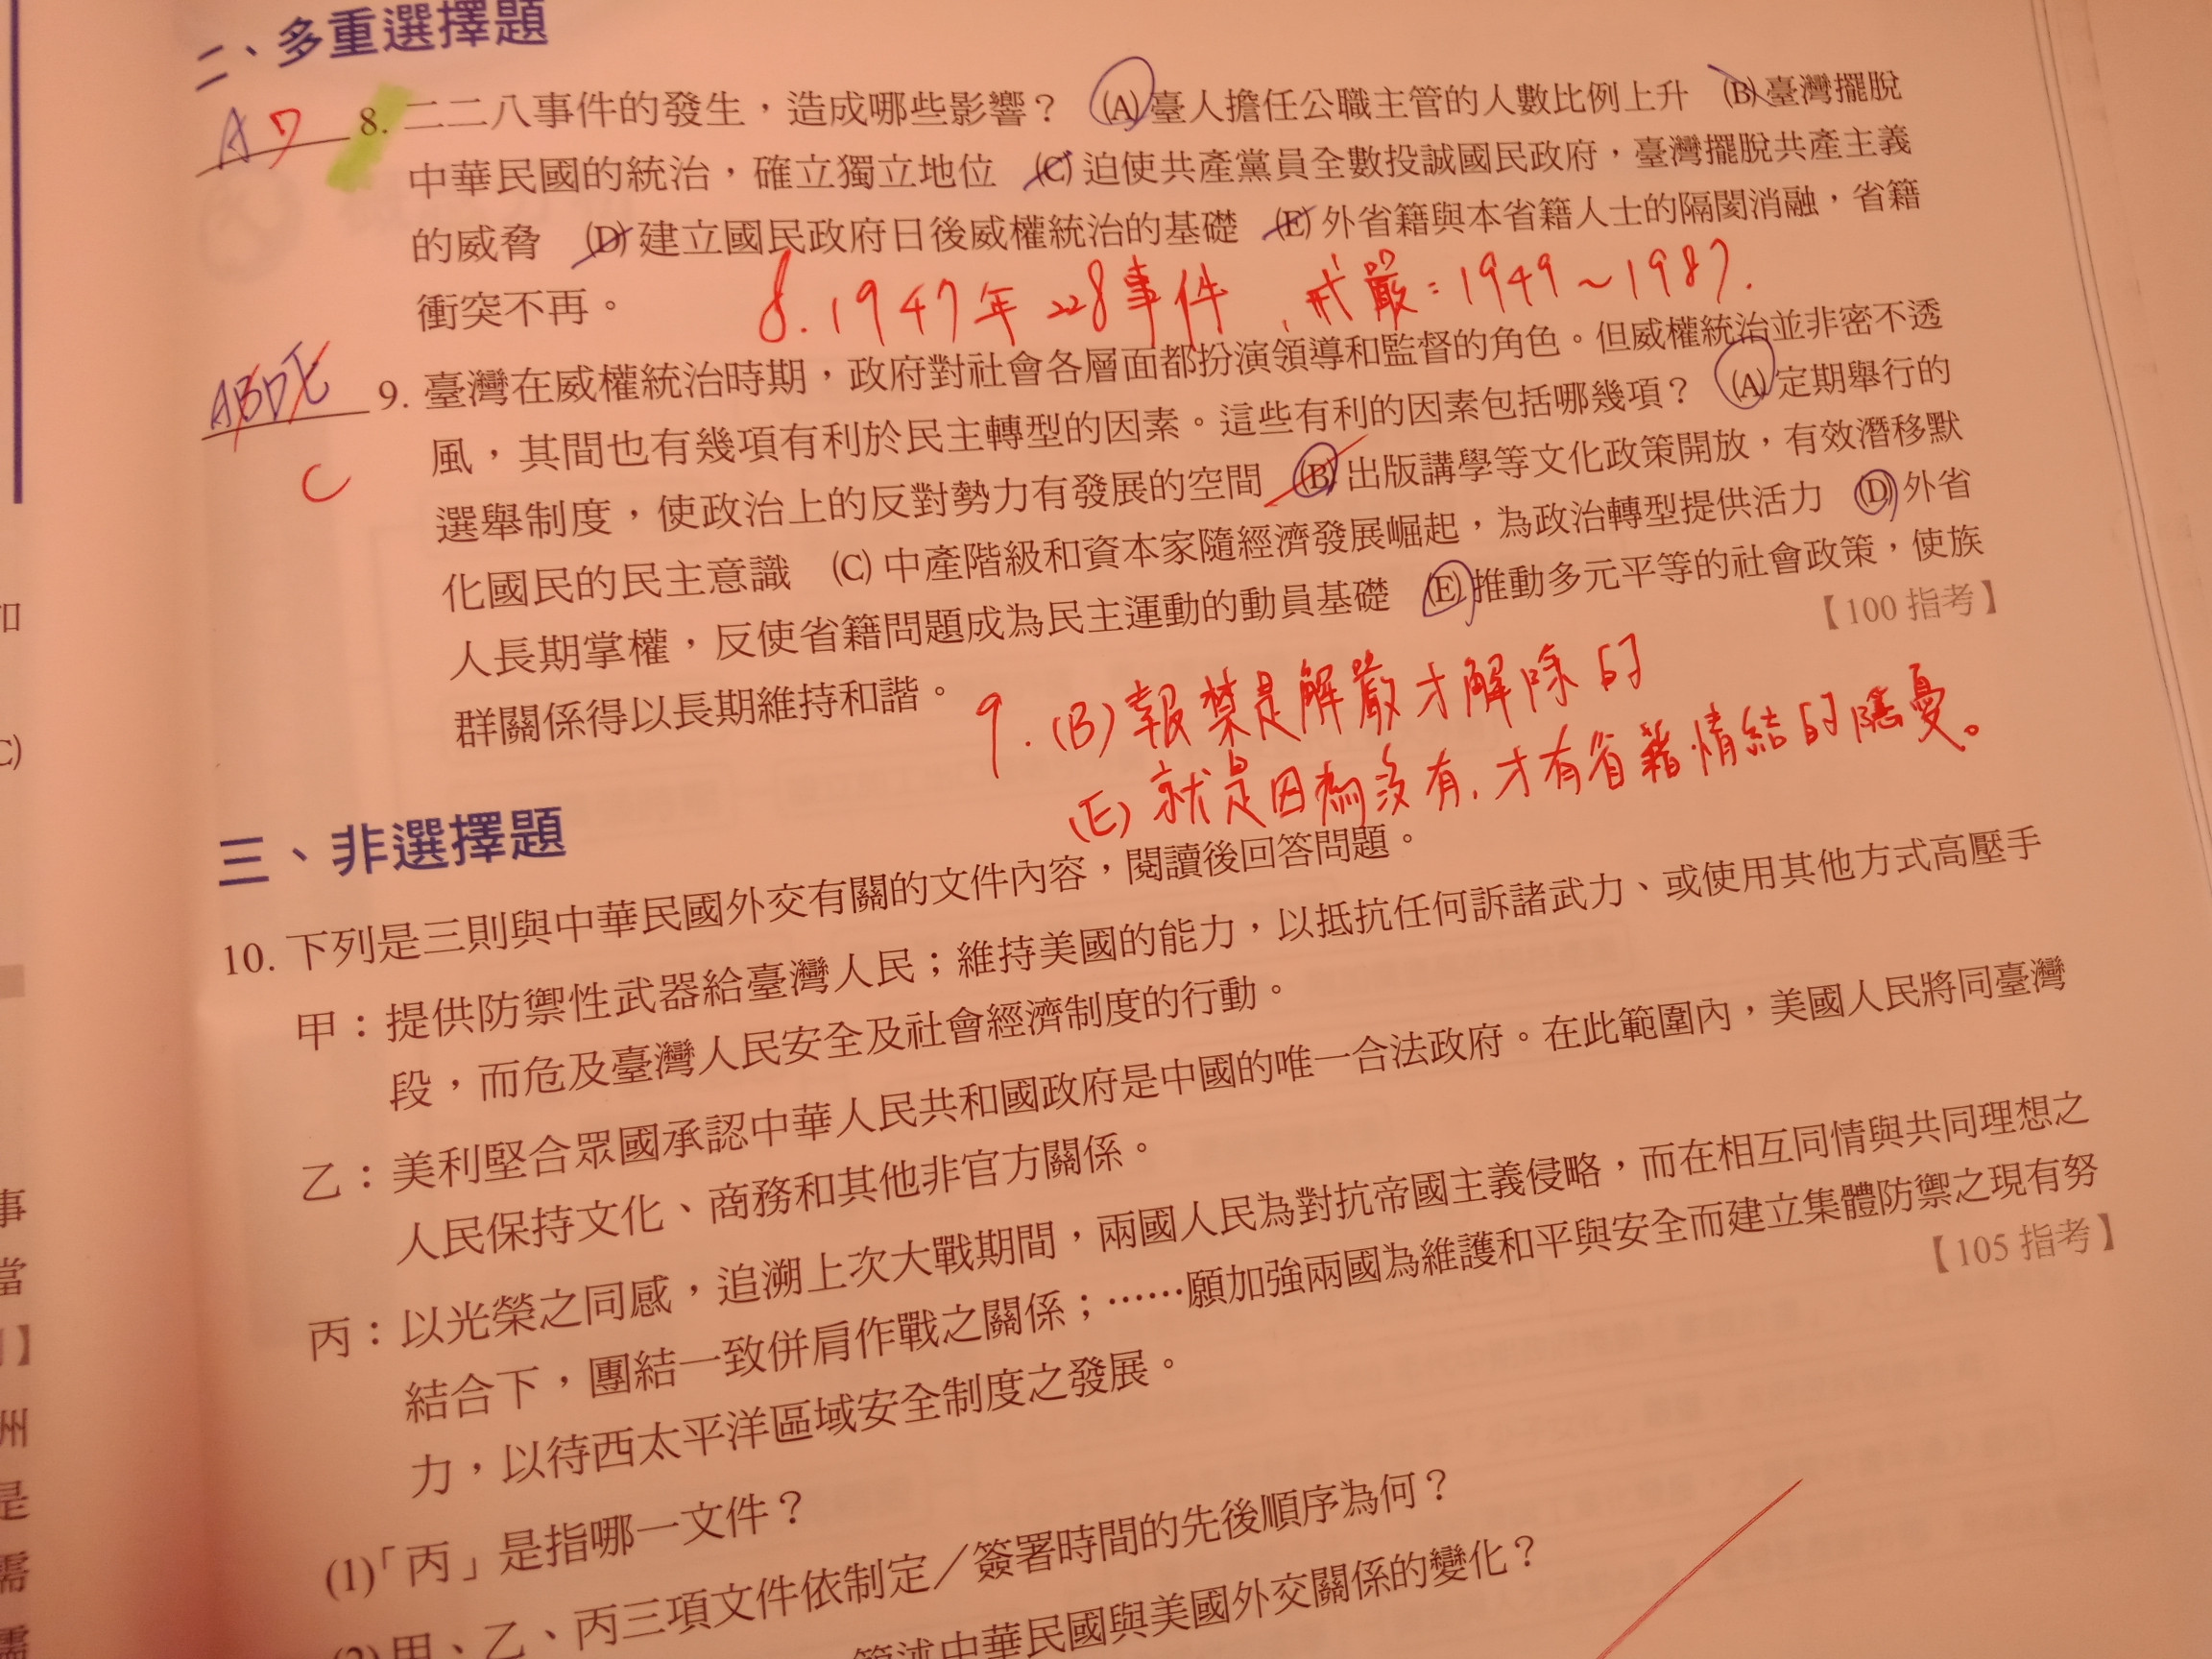 二、多重選擇題
A D 8. 二二八事件的發生，造成哪些影響？ (A)臺人擔任公職主管的人數比例上升 (B)臺灣擺脫
中華民國的統治，確立獨立地位 (C)迫使共產黨員全數投誠國民政府，臺灣擺脫共產主義
的威脅 (D)建立國民政府日後威權統治的基礎 (E)外省籍與本省籍人士的隔閡消融，省籍
衝突不再。
8. 1947年228事件，戒嚴：1949～1987.
ABDE 9. 臺灣在威權統治時期，政府對社會各層面都扮演領導和監督的角色。但威權統治並非密不透
C
風，其間也有幾項有利於民主轉型的因素。這些有利的因素包括哪幾項？ (A)定期舉行的
選舉制度，使政治上的反對勢力有發展的空間 (B)出版講學等文化政策開放，有效潛移默
化國民的民主意識 (C)中產階級和資本家隨經濟發展崛起，為政治轉型提供活力 (D)外省
人長期掌權，反使省籍問題成為民主運動的動員基礎 (E)推動多元平等的社會政策，使族
群關係得以長期維持和諧。
【100 指考】
9. (B)報禁是解嚴才解除的
(E)就是因為沒有，才有省籍情結的隱憂。
三、非選擇題
10. 下列是三則與中華民國外交有關的文件內容，閱讀後回答問題。
甲：提供防禦性武器給臺灣人民；維持美國的能力，以抵抗任何訴諸武力、或使用其他方式高壓手
段，而危及臺灣人民安全及社會經濟制度的行動。
乙：美利堅合眾國承認中華人民共和國政府是中國的唯一合法政府。在此範圍內，美國人民將同臺灣
人民保持文化、商務和其他非官方關係。
丙：以光榮之同感，追溯上次大戰期間，兩國人民為對抗帝國主義侵略，而在相互同情與共同理想之
結合下，團結一致併肩作戰之關係；……願加強兩國為維護和平與安全而建立集體防禦之現有努
力，以待西太平洋區域安全制度之發展。
【105 指考】
(1)「丙」是指哪一文件？
(2)甲、乙、丙三項文件依制定／簽署時間的先後順序為何？
簡述中華民國與美國外交關係的變化？